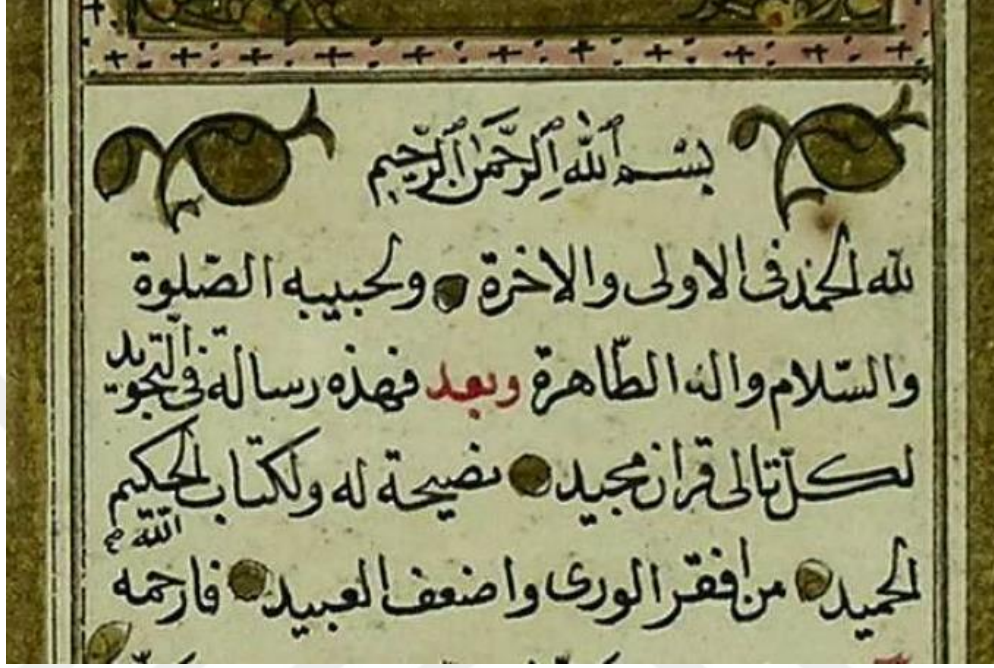 بسم الله الرحمن الرحيم
لله الحمد فى الاولى والاخرة ولحبيبه الصلوة
والسلام واله الطاهرة وبعد فهذه رسالة فى التجويد
لكل تالى قران مجيد نصيحة له ولكتاب الحكيم
الحميد من افقر الورى واضعف العبيد فارحمه
اللّه